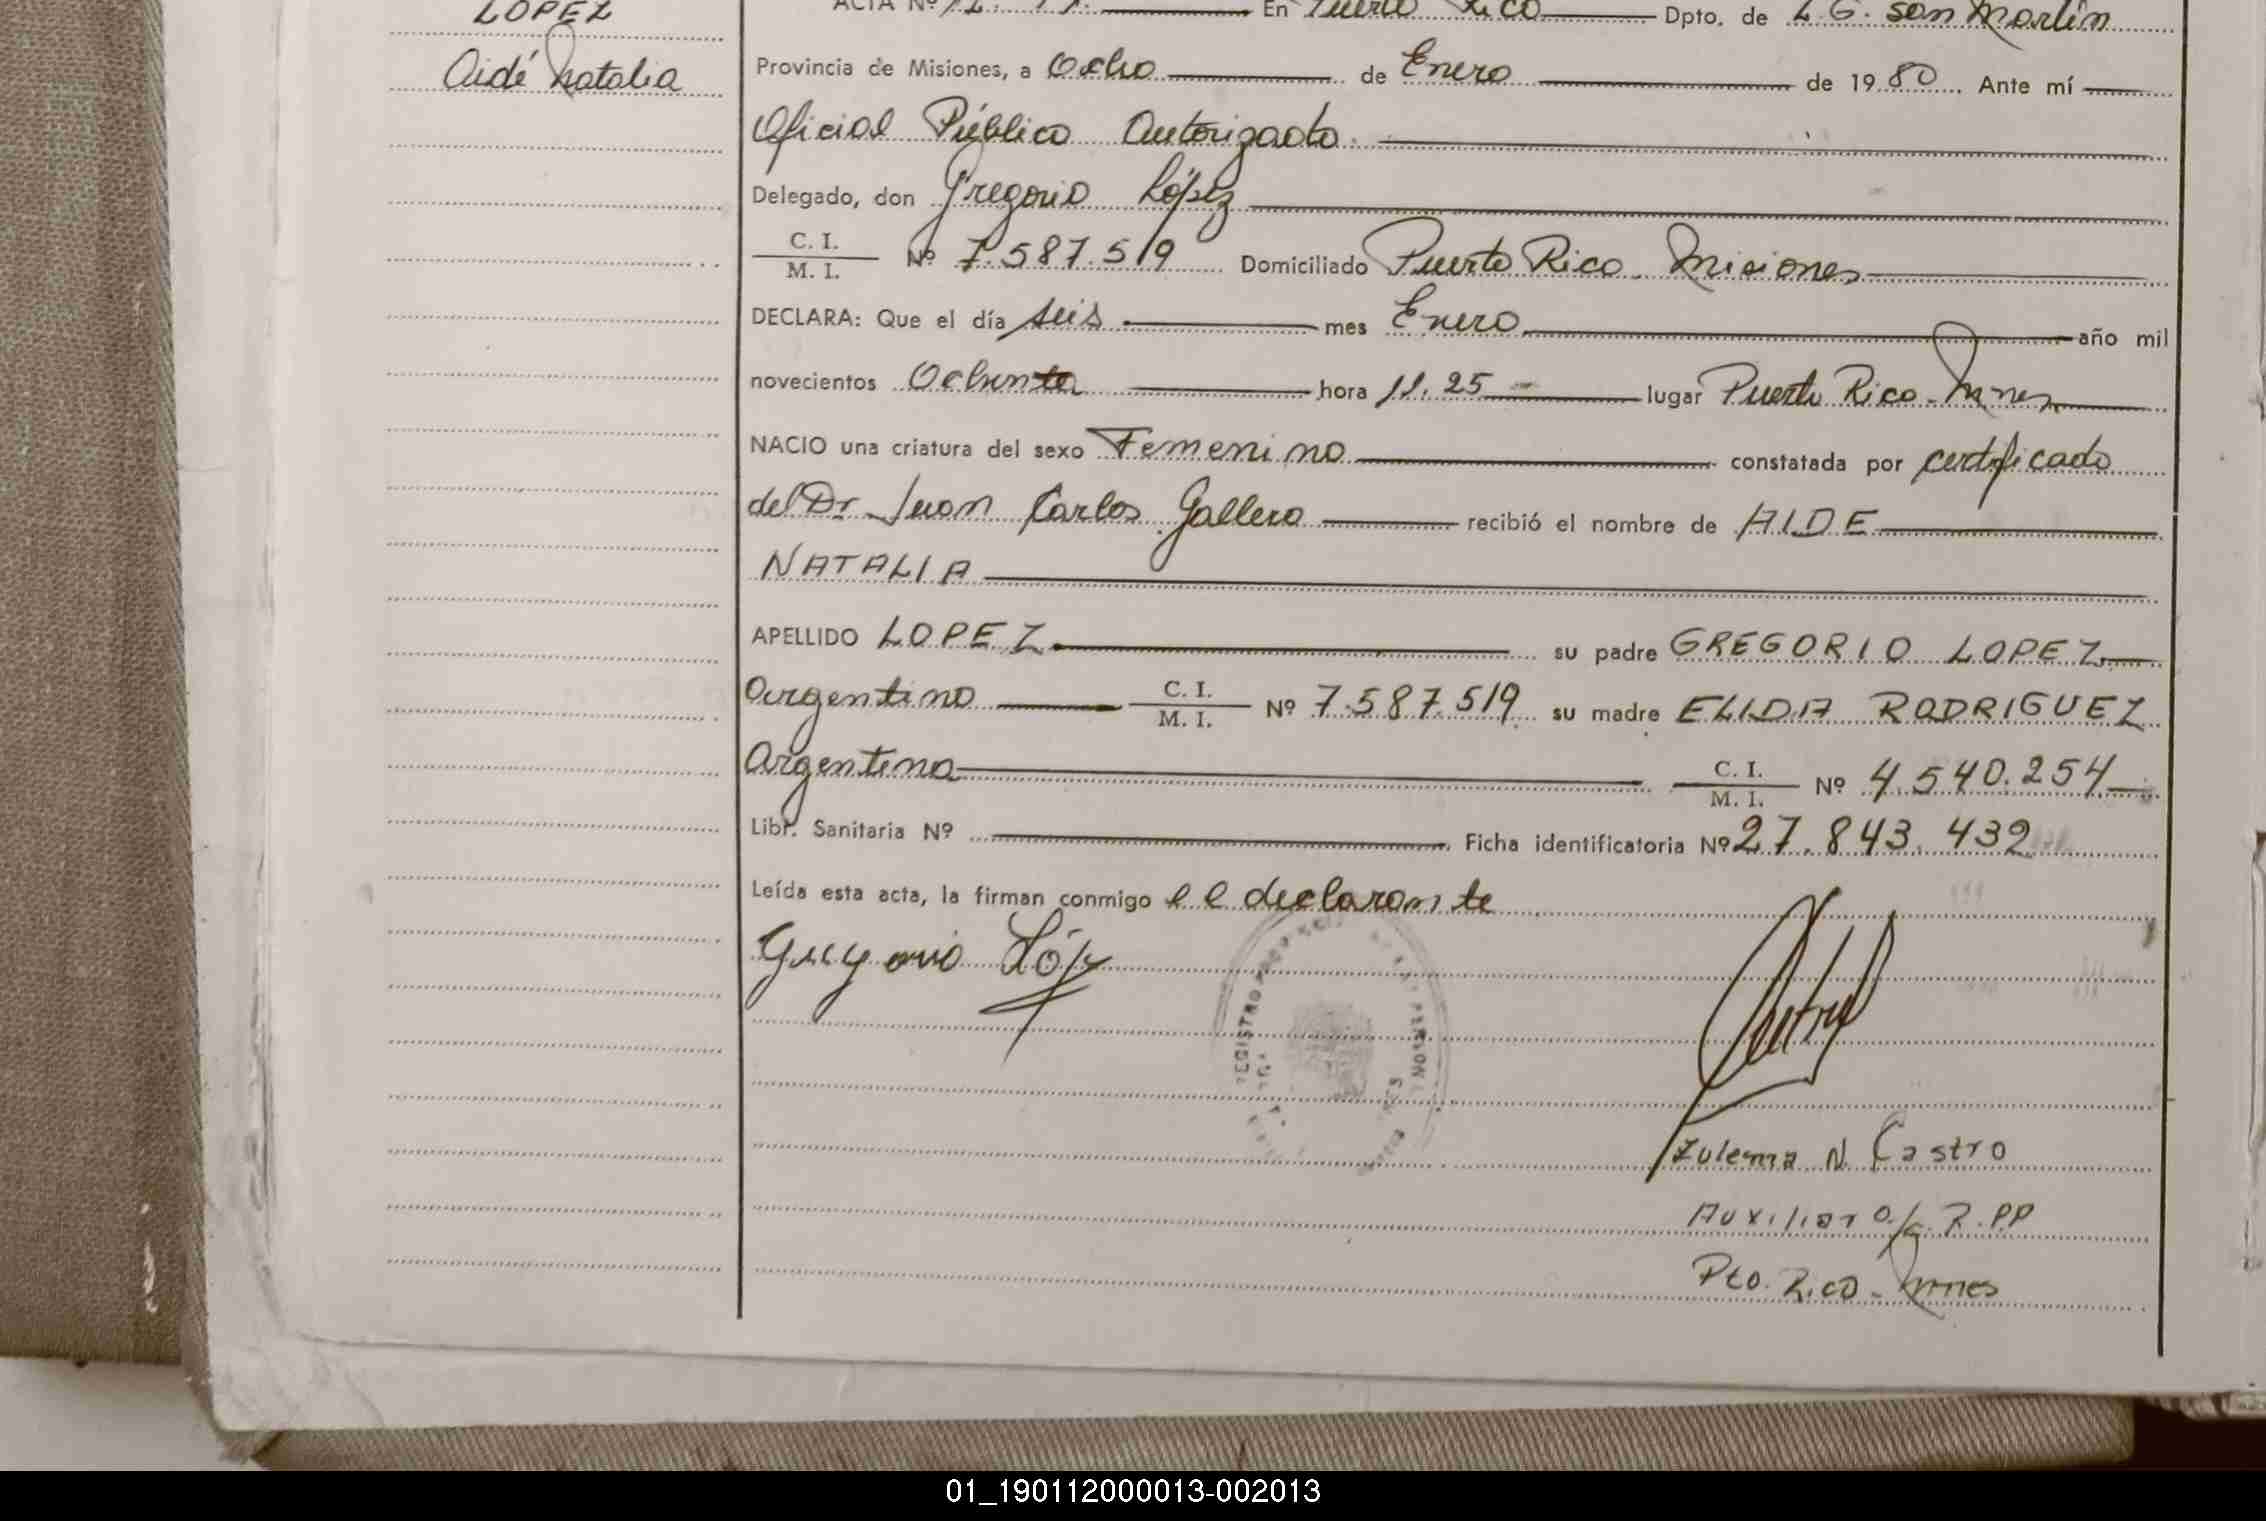 LOPEZ
Aidé Natalia
ACTA Nº En Puerto Rico Dpto. de L. G. San Martín
Provincia de Misiones, a Ocho de Enero de 1980. Ante mí
Oficial Público Autorizado.
Delegado, don Gregorio López
C. I.
M. I. Nº 7.587.519 Domiciliado Puerto Rico - Misiones
DECLARA: Que el día seis mes Enero año mil
novecientos Ochenta hora 11.25 lugar Puerto Rico - Mnes
NACIO una criatura del sexo Femenino constatada por certificado
del Dr. Juan Carlos Gallero recibió el nombre de AIDE
NATALIA
APELLIDO LOPEZ su padre GREGORIO LOPEZ
Argentino C. I. M. I. Nº 7.587.519 su madre ELIDA RODRIGUEZ
Argentina C. I. M. I. Nº 4.540.254
Libr. Sanitaria Nº Ficha identificatoria Nº 27.843.432
Leída esta acta, la firman conmigo el declarante
Gregorio López
Zulema N. Castro
Auxiliar O/c. R.PP
Pto. Rico - Mnes
01_190112000013-002013